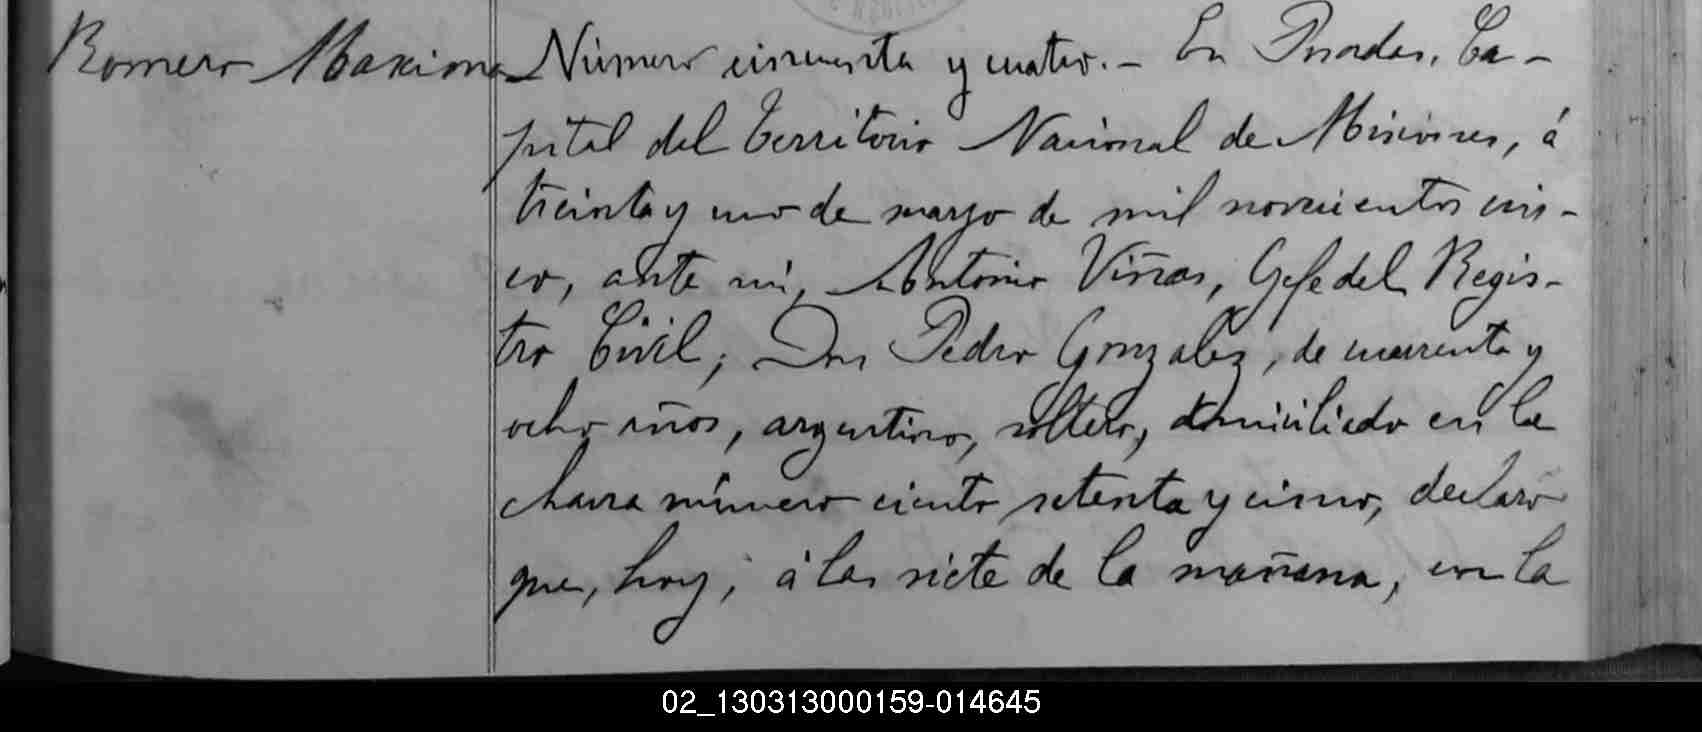 Romero Maxima
Número cincuenta y cuatro.- En Posadas, Ca-
pital del Territorio Nacional de Misiones, á
treinta y uno de marzo de mil novecientos cin-
co, ante mí, Antonio Viñas, Gefe del Regis-
tro Civil; Don Pedro Gonzalez, de cuarenta y
ocho años, argentino, soltero, domiciliado en la
chacra número ciento setenta y cinco, declaró
que, hoy, á las siete de la mañana, en la
02_130313000159-014645